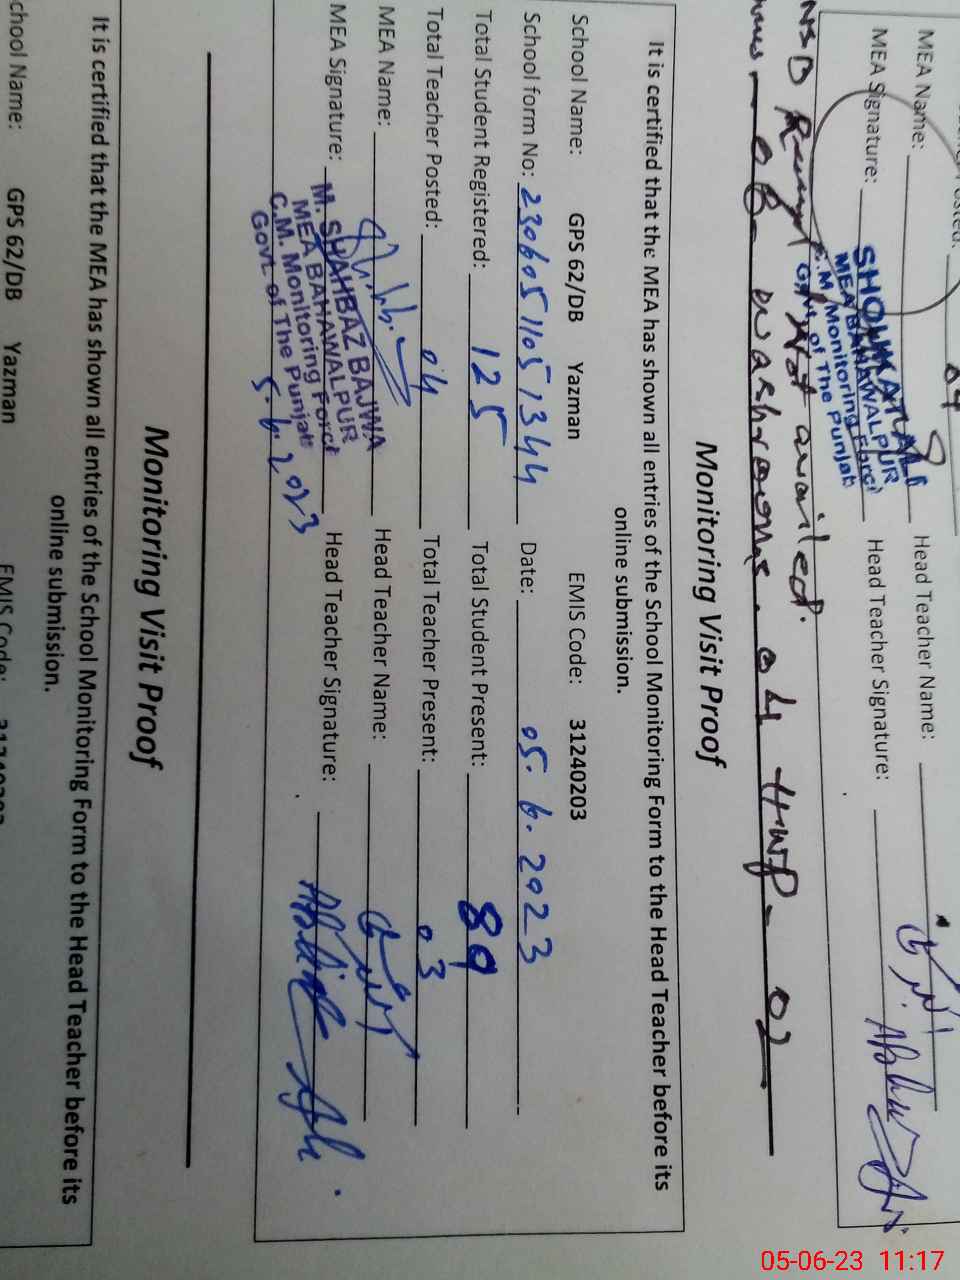 MEA Name: Head Teacher Name:
MEA Signature: Head Teacher Signature:
SHOUKAT ALI
MEA BAHAWALPUR
C.M Monitoring Force
Govt. of The Punjab
NSB Receipt Not availed.
08 washrooms. 04 HWP - 02
Monitoring Visit Proof
It is certified that the MEA has shown all entries of the School Monitoring Form to the Head Teacher before its
online submission.
School Name: GPS 62/DB Yazman EMIS Code: 31240203
School form No: 23060511051344 Date: 05.6.2023
Total Student Registered: 125 Total Student Present: 89
Total Teacher Posted: 04 Total Teacher Present: 03
MEA Name: Head Teacher Name:
MEA Signature: Head Teacher Signature:
M. SHAHBAZ BAJWA
MEA BAHAWALPUR
C.M. Monitoring Force
Govt. of The Punjab
5.6.2023
Monitoring Visit Proof
It is certified that the MEA has shown all entries of the School Monitoring Form to the Head Teacher before its
online submission.
School Name: GPS 62/DB Yazman EMIS Code: 31240203
05-06-23 11:17